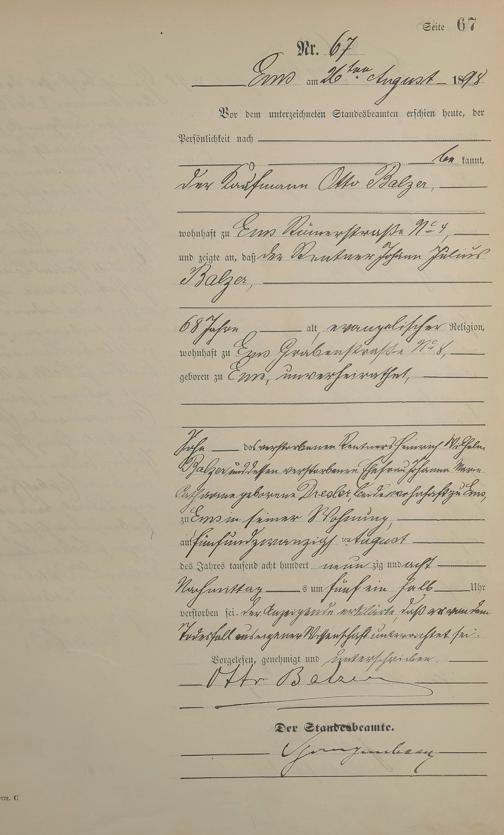 Seite 67
Nr. 67
Ems am 26ten August 1898
Vor dem unterzeichneten Standesbeamten erschien heute, der
Persönlichkeit nach
be kannt,
der Kaufmann Otto Balzer,
wohnhaft zu Ems Römerstraße No 4,
und zeigte an, daß der Rentner Johann Julius
Balzer,
68 Jahre alt, evangelischer Religion,
wohnhaft zu Ems Grabenstraße No 8,
geboren zu Ems, unverheirathet,
Sohn des verstorbenen Rentners Heinrich Wilhelm
Balzer und dessen verstorbenen Ehefrau Johanna
Catharine geborene Dresler, beide wohnhaft zu Ems,
zu Ems in seiner Wohnung,
am fünfundzwanzigsten August
des Jahres tausend acht hundert neun zig und acht
Nachmittags um fünf ein halb Uhr
verstorben sei. Der Anzeigende erklärte, daß er von dem
Todesfall aus eigener Wissenschaft unterrichtet sei.
Vorgelesen, genehmigt und unterschrieben
Otto Balzer
Der Standesbeamte.